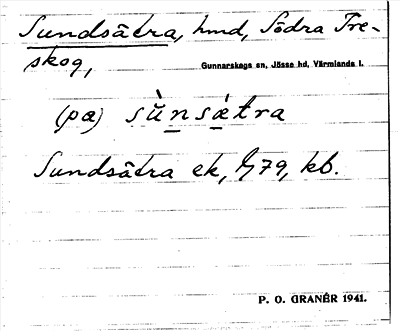 Sundsätra, hmd, Södra Tre-
skog, Gunnarskogs sn, Jösse hd, Värmlands l.
(pa) sùnsǽtra
Sundsätra ek, G79, kb.
P. O. GRANÉR 1941.